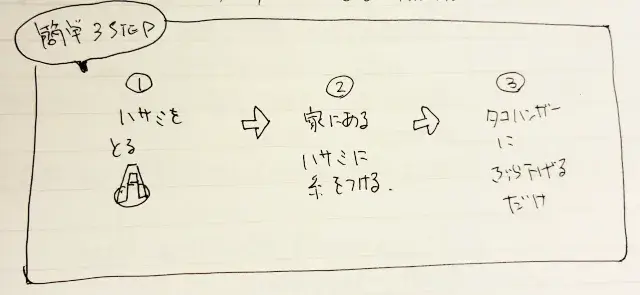 簡単3STEP
①
ハサミを
とる
②
家にある
ハサミに
糸をつける.
③
タコハンガー
に
ぶら下げる
だけ